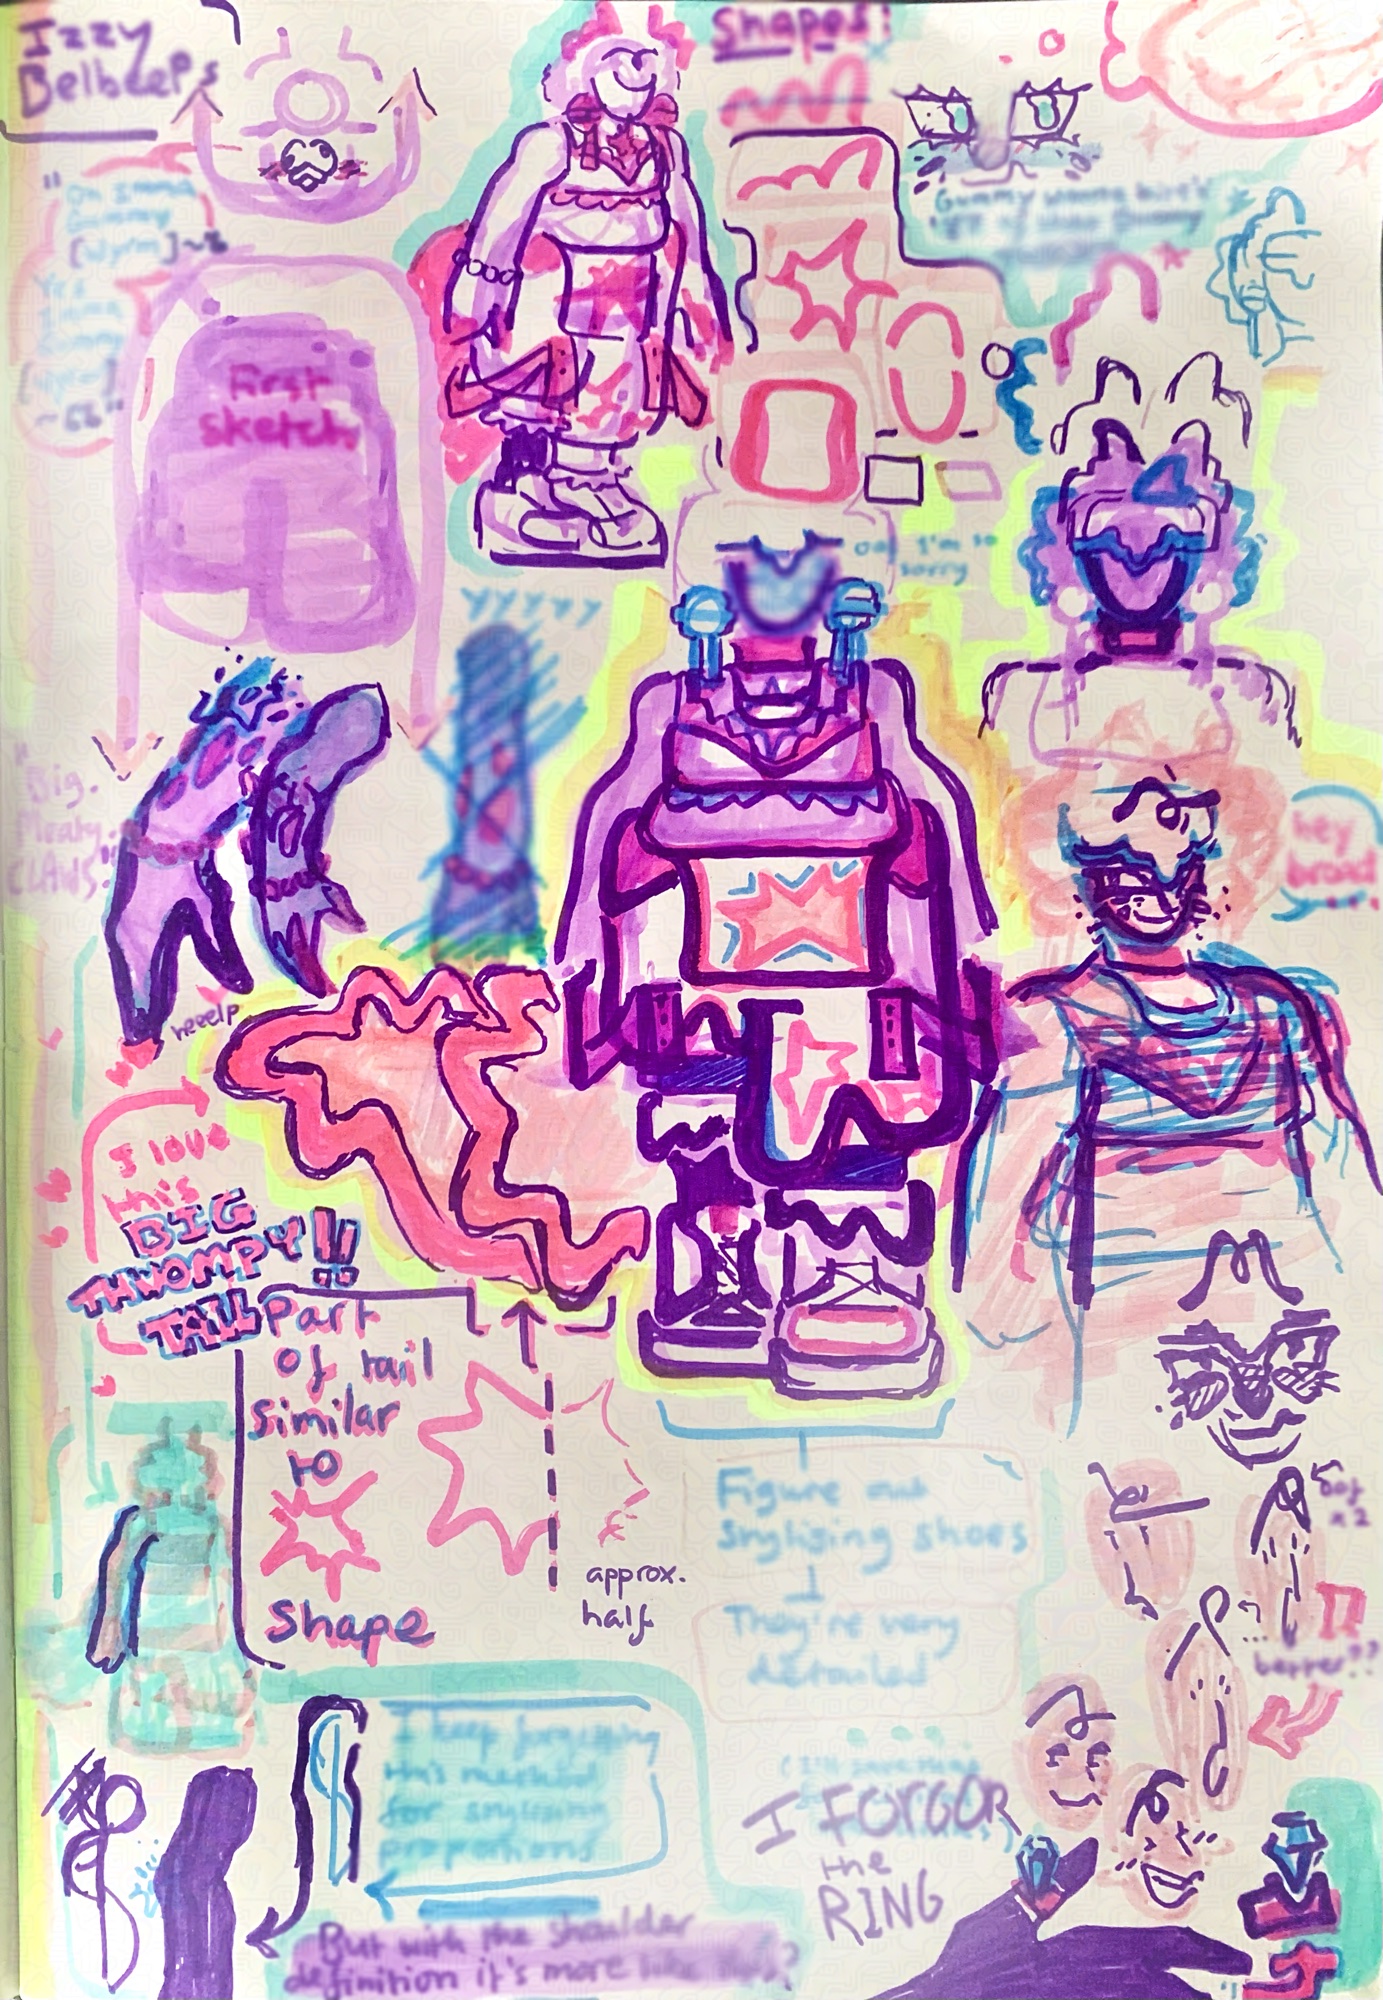 Izzy
Belbeeps
Shapes!
"Oh Imma
Gummy
[Wyrm]~"
Yes
Imma
Gummy
[Wyrm]
Gummy
First
sketch.
I'm so
sorry
yyyyyy
"Big.
Meaty.
CLAWS."
heeelp
hey
broad
I love
this
BIG
THWOMPY!!
TAIL
Part
of tail
similar
to
Shape
approx.
half
x2
better??
Figure out
stylising shoes
They're very
detailed
I keep forgetting
this method
for stylising
proportions
But with the shoulder
definition it's more like this?
I FORGOR
the
RING